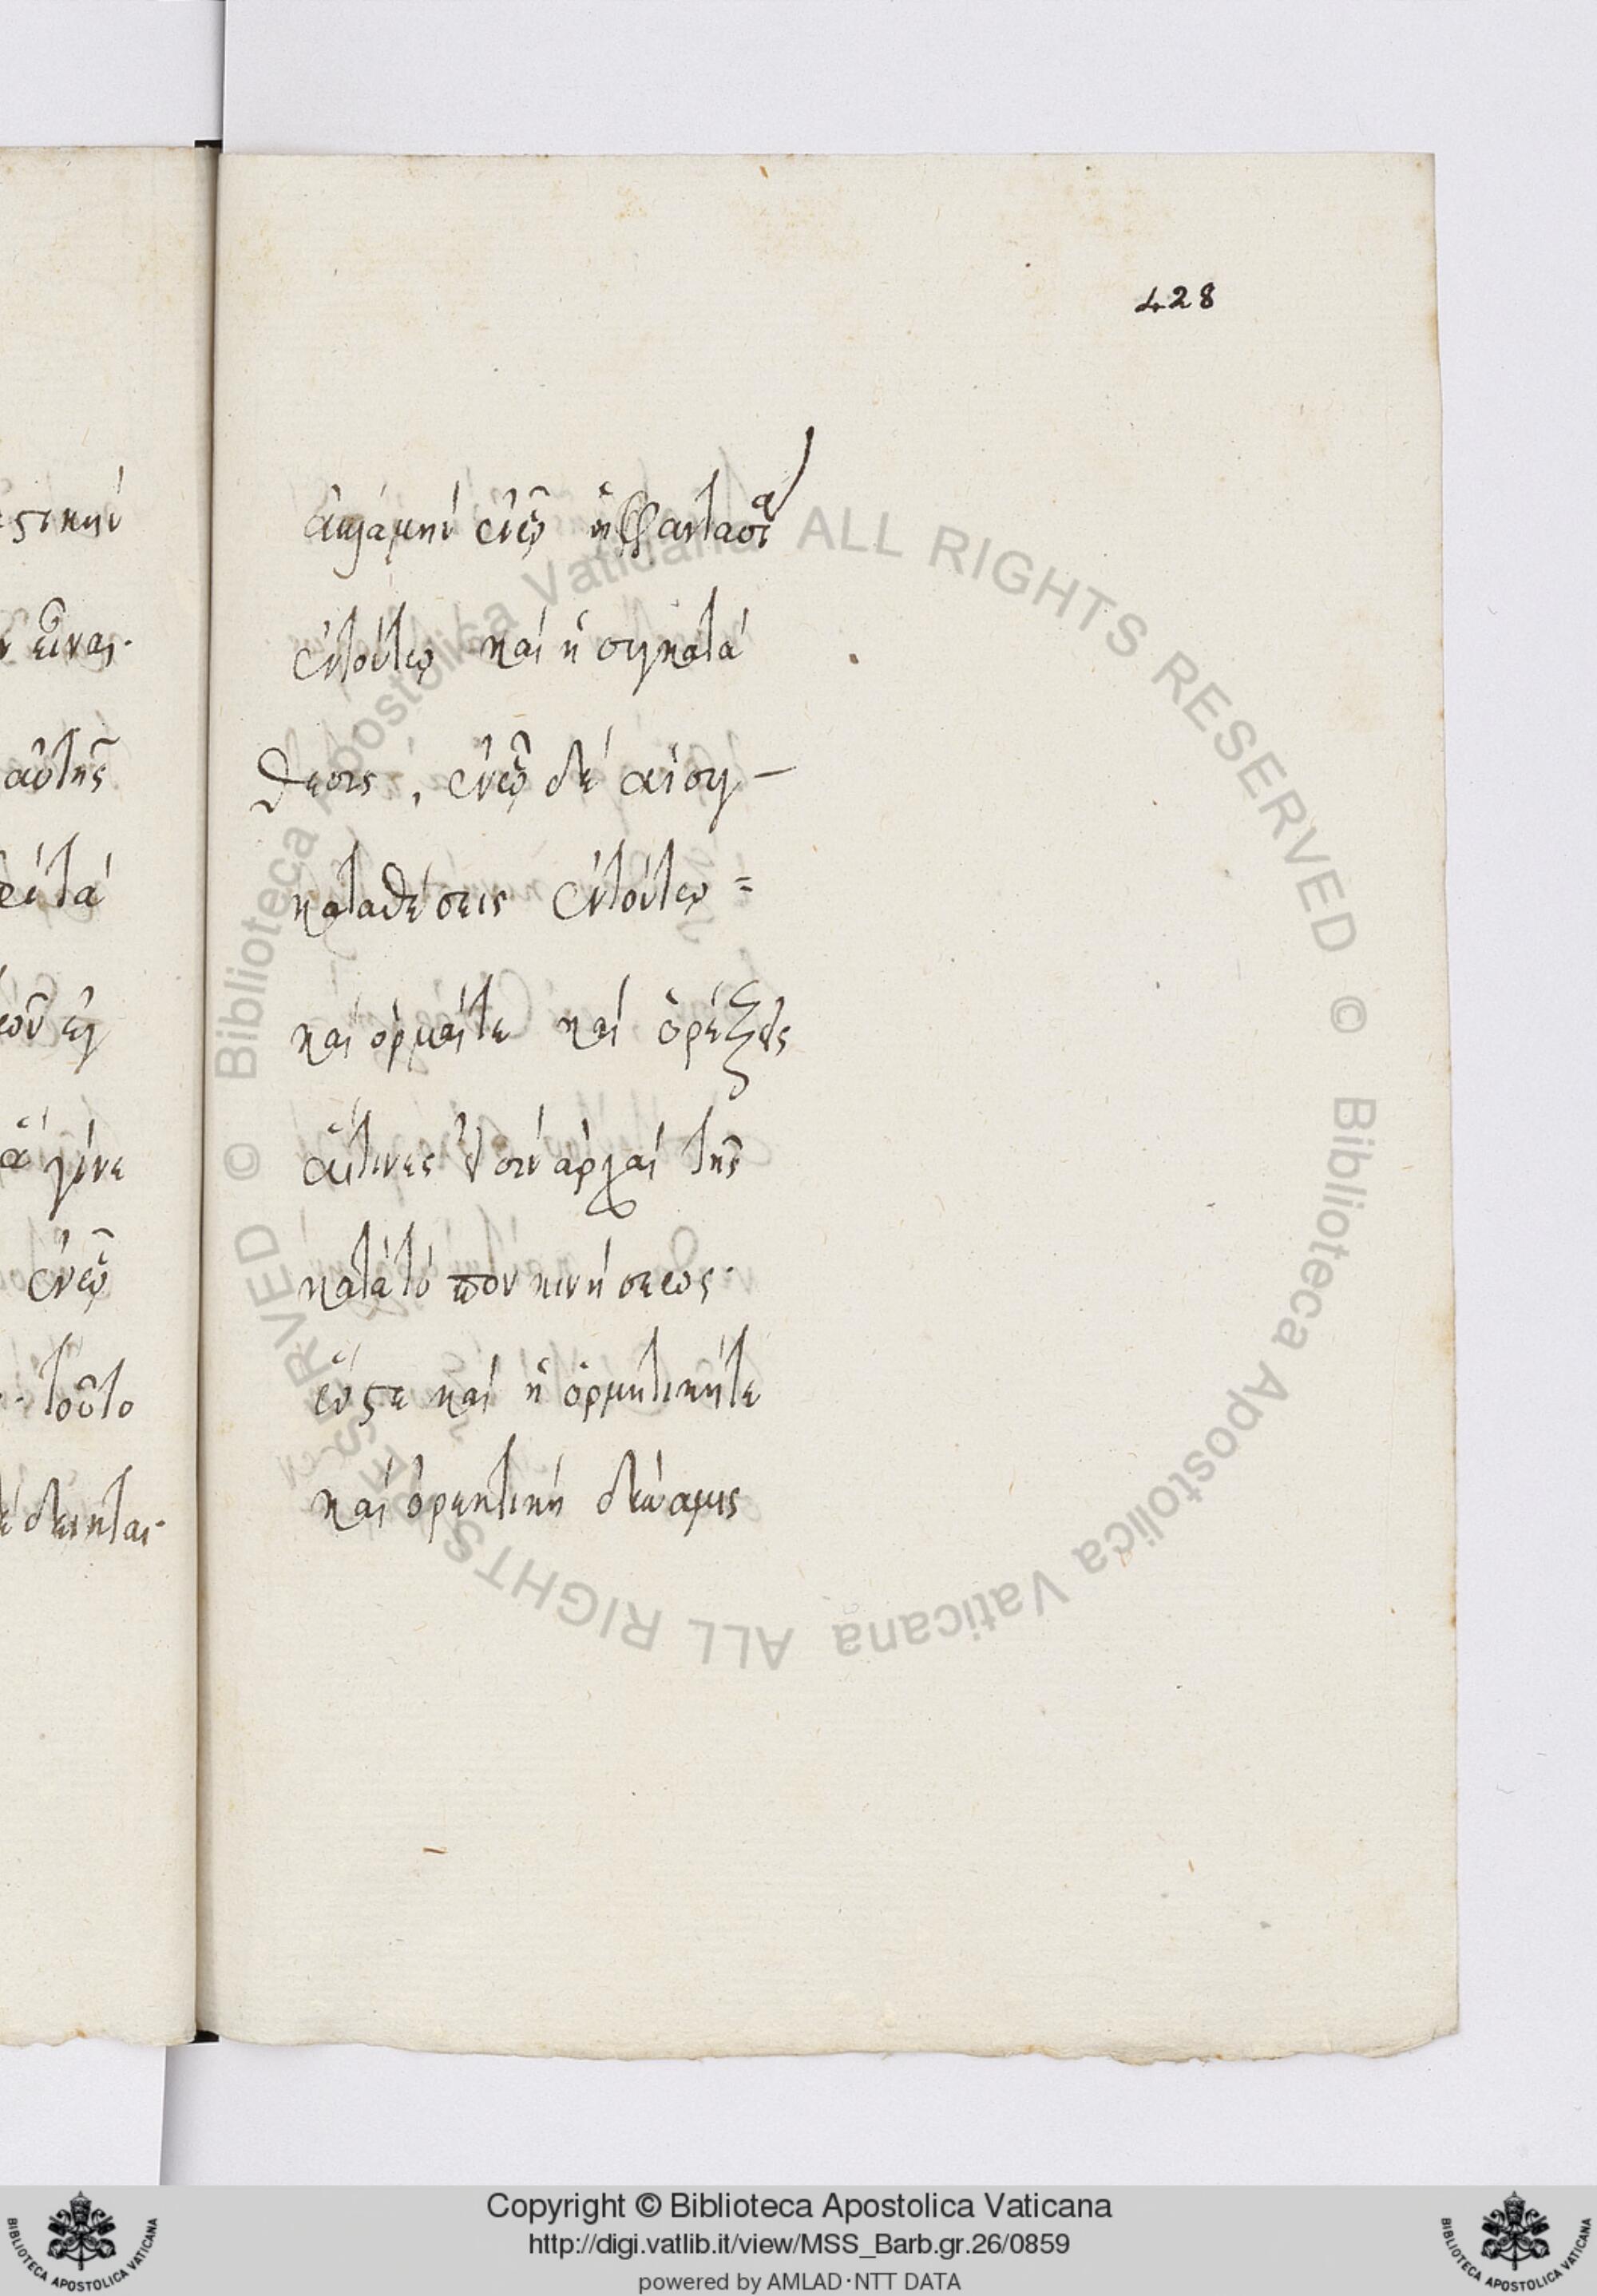 428
ἀλλαμήν ἐνῶ ἡ φαντασία
ἐντούτω καί ἡ συγκατά
θεσις, ἐνῶ δέ αἱ συγ-
καταθέσεις ἐντούτω=
καί ὁρμαίτε καί ὀρέξεις
αἵτινες εἰσίν ἀρχαί τῆς
κατάτόπον κινήσεως·
ὥστε καί ἡ ὁρμητικήτε
καί ὀρεκτική δύναμις
εἶναι·
αὐτῆς
ἐνῶ
τοῦτο
© Biblioteca Apostolica Vaticana ALL RIGHTS RESERVED © Biblioteca Apostolica Vaticana ALL RIGHTS RESERVED
Copyright © Biblioteca Apostolica Vaticana
http://digi.vatlib.it/view/MSS_Barb.gr.26/0859
powered by AMLAD·NTT DATA
BIBLIOTECA APOSTOLICA VATICANA
BIBLIOTECA APOSTOLICA VATICANA